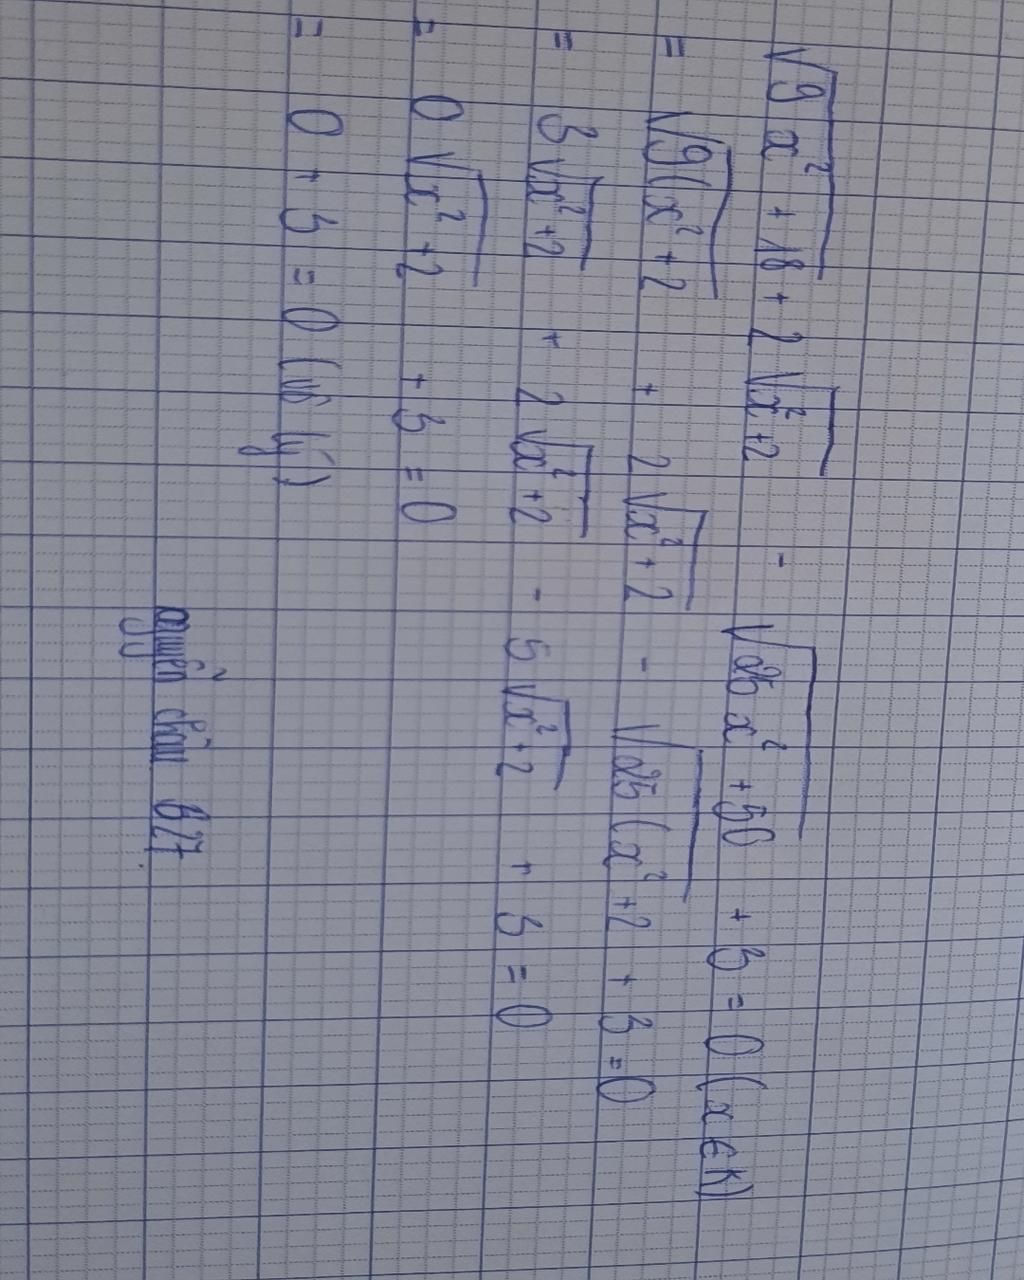 √9x² + 18 + 2√x²+2 - √25x² + 50 + 3 = 0 (x ∈ R)
= √9(x² + 2 + 2√x² + 2 - √25(x² + 2 + 3 = 0
= 3√x² + 2 + 2√x² + 2 - 5√x² + 2 + 3 = 0
= 0√x² + 2 + 3 = 0
= 0 + 3 = 0 (vô lý)
627